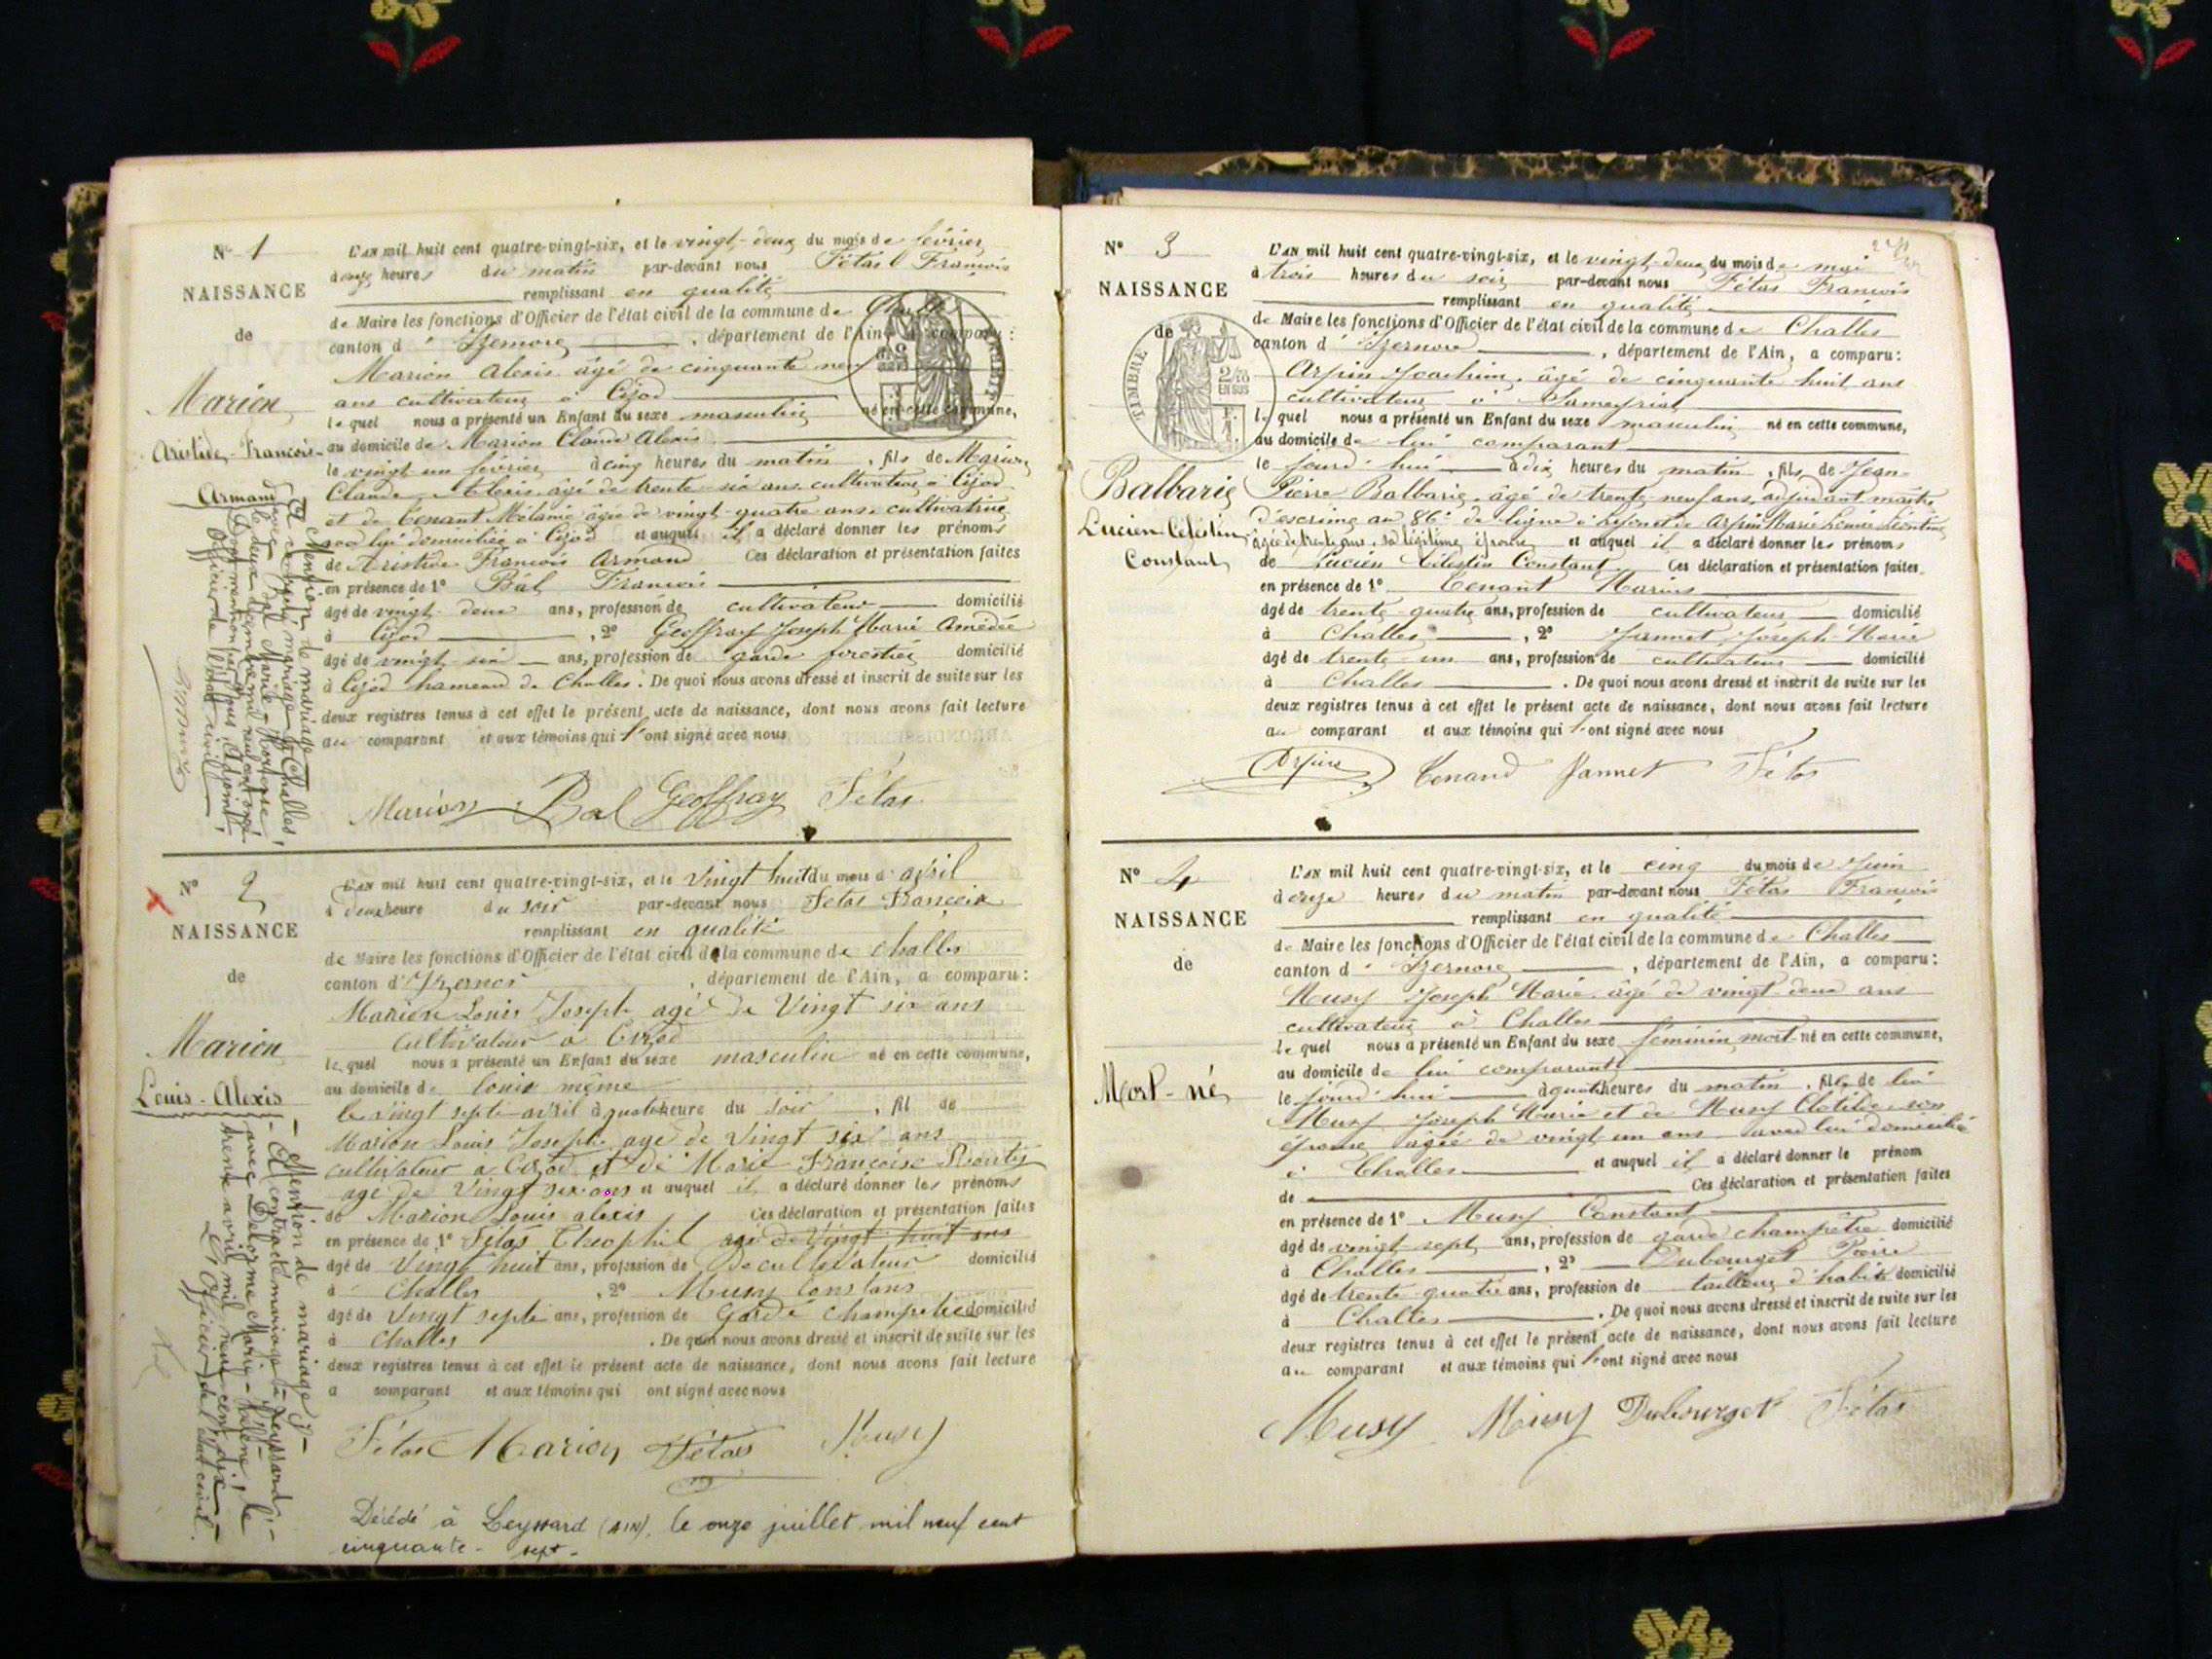 N° 1
NAISSANCE
de
Marion
Aristide-François-
Armand
L'AN mil huit cent quatre-vingt-six, et le vingt-deux du mois de février
à onze heures du matin par-devant nous Fétas François
remplissant en qualité
de Maire les fonctions d'Officier de l'état civil de la commune de Challes
canton d'Izernore, département de l'Ain, a comparu:
Marion Alexis âgé de cinquante neuf
ans cultivateur à Cizod
lequel nous a présenté un Enfant du sexe masculin né en cette commune,
au domicile de Marion Claude Alexis
le vingt un février à cinq heures du matin, fils de Marion
Claude Alexis âgé de trente-six ans cultivateur à Cizod
et de Tenant Mélanie âgée de vingt-quatre ans cultivatrice
avec lui domiciliée à Cizod et auquel il a déclaré donner les prénoms
de Aristide François Armand Ces déclaration et présentation faites
en présence de 1° Bal François
âgé de vingt-deux ans, profession de cultivateur domicilié
à Cizod, 2° Geoffray Joseph Marie Amédée
âgé de vingt-six ans, profession de garde forestier domicilié
à Cizod hameau de Challes. De quoi nous avons dressé et inscrit de suite sur les
deux registres tenus à cet effet le présent acte de naissance, dont nous avons fait lecture
au comparant et aux témoins qui l'ont signé avec nous
Marion Bal Geoffray Fétas
Mention de mariage
A contracté mariage à Challes,
le deux décembre mil neuf cent
Officier de l'état civil
N° 2
NAISSANCE
de
Marion
Louis-Alexis
L'AN mil huit cent quatre-vingt-six, et le Vingt huit du mois d'avril
à deux heure du soir par-devant nous Fetas François
remplissant en qualité
de Maire les fonctions d'Officier de l'état civil de la commune de Challes
canton d'Izernor, département de l'Ain, a comparu:
Marion Louis Joseph agé de Vingt six ans
Cultivateur a Cizod
lequel nous a présenté un Enfant du sexe masculin né en cette commune,
au domicile de louis même
le vingt septe avril à quatre heure du soir, fil de
Marion Louis Joseph age de Vingt six ans
cultivateur a Cizod et de Marie Françoise
age de Vingt six ans et auquel il a déclaré donner les prénoms
de Marion Louis alexis Ces déclaration et présentation faites
en présence de 1° Fétas Théophil agé de Vingt huit ans
âgé de Vingt huit ans, profession de De cultivateur domicilié
à Challes, 2° Musy Constans
âgé de Vingt septe ans, profession de Garde champetre domicilié
à Challes. De quoi nous avons dressé et inscrit de suite sur les
deux registres tenus à cet effet le présent acte de naissance, dont nous avons fait lecture
a comparant et aux témoins qui ont signé avec nous
Fétas Marion Fétas Musy
Décédé à Leyssard (AIN), le onze juillet mil neuf cent
cinquante-sept-
- Mention de mariage -
- A contracté mariage à Leyssard -
avec Delorme Marie- le
trente avril mil neuf cent dix -
L'Officier de l'état civil.
N° 3
NAISSANCE
de
TIMBRE
2/10
EN SUS
Balbarie
Lucien Célestin
Constant
L'AN mil huit cent quatre-vingt-six, et le vingt-deux du mois de mai
à trois heures du soir par-devant nous Fétas François
remplissant en qualité
de Maire les fonctions d'Officier de l'état civil de la commune de Challes
canton d'Izernore, département de l'Ain, a comparu:
Arpin Joachim, âgé de cinquante huit ans
cultivateur à
lequel nous a présenté un Enfant du sexe masculin né en cette commune,
au domicile de lui comparant
le jourd'hui à dix heures du matin, fils de Jean-
Pierre Balbarie, âgé de trente-neuf ans, adjudant maître
d'escrime au 86e de ligne à Lyon et de Arpin Marie Louise Léontine
âgée de trente ans, sa légitime épouse et auquel il a déclaré donner les prénoms
de Lucien Célestin Constant. Ces déclaration et présentation faites
en présence de 1° Tenant Marius
âgé de trente-quatre ans, profession de cultivateur domicilié
à Challes, 2° Jannet Joseph-Marie
âgé de trente-un ans, profession de cultivateur domicilié
à Challes. De quoi nous avons dressé et inscrit de suite sur les
deux registres tenus à cet effet le présent acte de naissance, dont nous avons fait lecture
au comparant et aux témoins qui l'ont signé avec nous
Arpin Tenand Jannet Fétas
N° 4
NAISSANCE
de
Mort-né
L'AN mil huit cent quatre-vingt-six, et le cinq du mois de Juin
à onze heures du matin par-devant nous Fétas François
remplissant en qualité
de Maire les fonctions d'Officier de l'état civil de la commune de Challes
canton d'Izernore, département de l'Ain, a comparu:
Musy Joseph Marie âgé de vingt-deux ans
cultivateur à Challes
lequel nous a présenté un Enfant du sexe féminin, mort-né en cette commune,
au domicile de lui comparant
le jourd'hui à quatre heures du matin, fille de lui
Musy Joseph Marie et de Musy Clotilde son
épouse âgée de vingt un ans avec lui domiciliée
à Challes et auquel il a déclaré donner le prénom
de Ces déclaration et présentation faites
en présence de 1° Musy Constant
âgé de vingt-sept ans, profession de garde champêtre domicilié
à Challes, 2° Dubourget Pierre
âgé de trente-quatre ans, profession de tailleur d'habits domicilié
à Challes. De quoi nous avons dressé et inscrit de suite sur les
deux registres tenus à cet effet le présent acte de naissance, dont nous avons fait lecture
au comparant et aux témoins qui l'ont signé avec nous
Musy Musy Dubourget Fétas